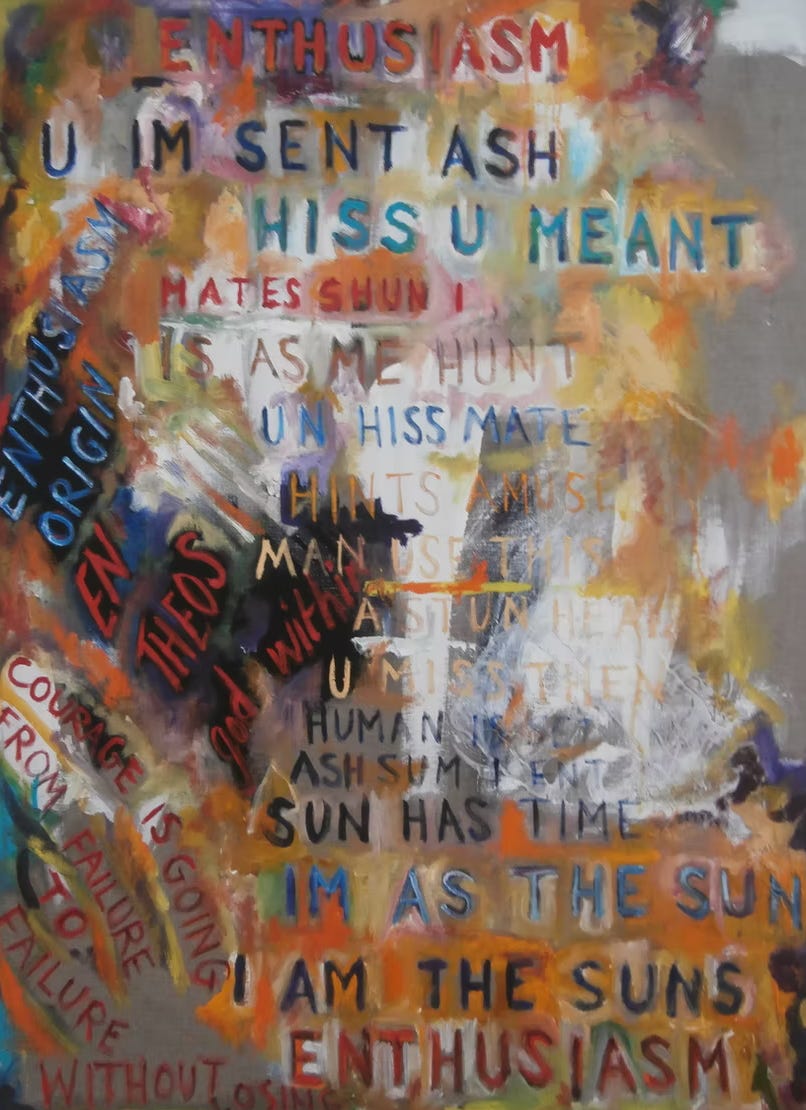 ENTHUSIASM
U IM SENT ASH
HISS U MEANT
MATES SHUN I
IS AS ME HUNT
UN HISS MATE
HINTS AMUSE
MAN USE THIS
A STUN HEAL
U MISS THEN
HUMAN IS SET
ASH SUM I ENT
SUN HAS TIME
IM AS THE SUN
I AM THE SUNS
ENTHUSIASM
ENTHUSIASM
ORIGIN
EN
THEOS
god within
COURAGE IS GOING
FROM FAILURE
TO
FAILURE
WITHOUT
LOSING